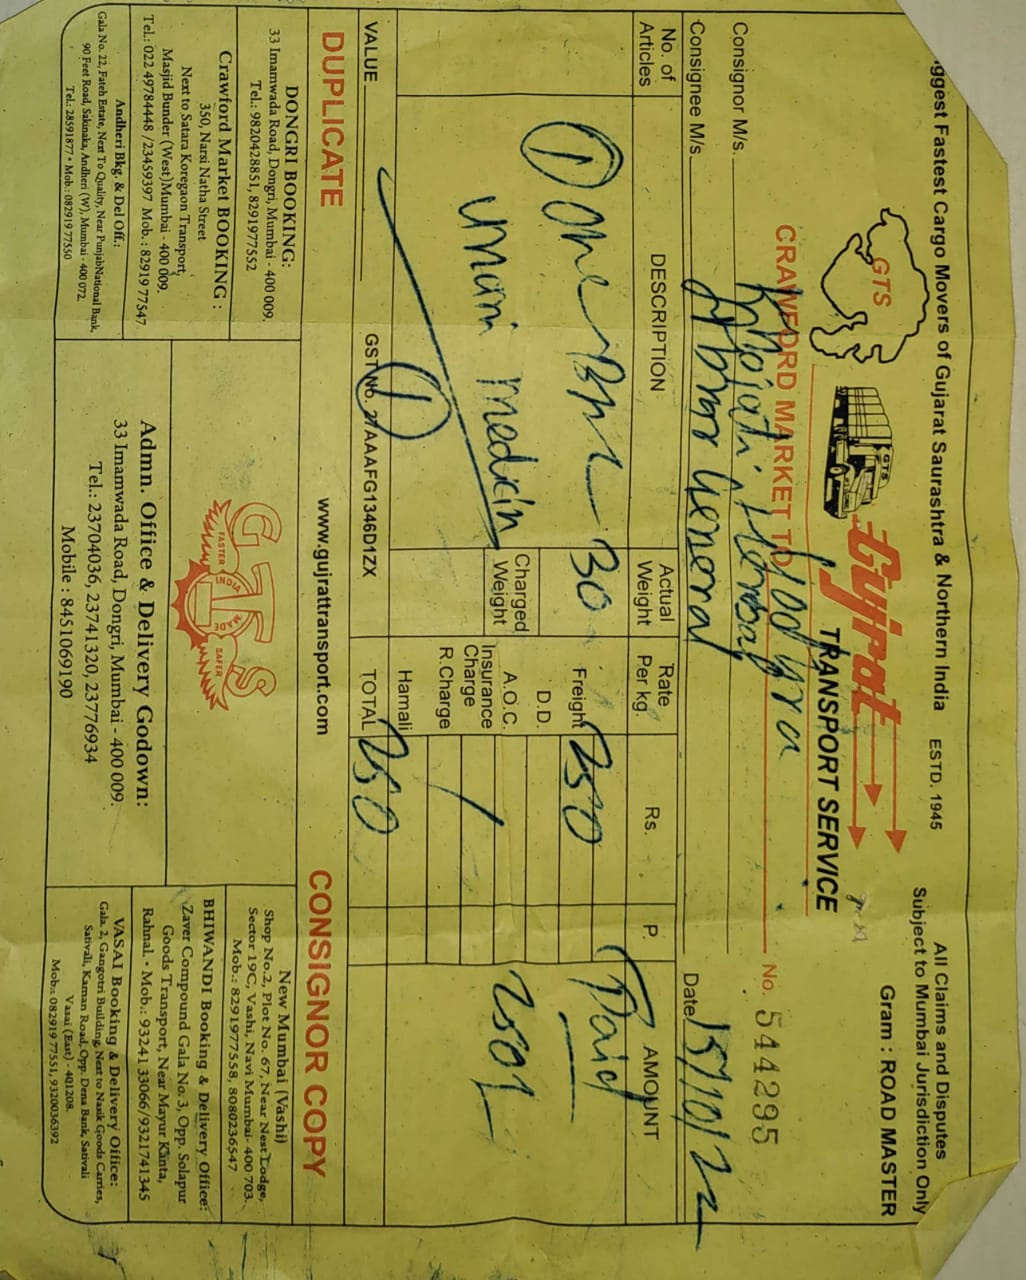 iggest Fastest Cargo Movers of Gujarat Saurashtra & Northern India ESTD. 1945
All Claims and Disputes
Subject to Mumbai Jurisdiction Only
Gram : ROAD MASTER
GTS
GTS
Gujrat
TRANSPORT SERVICE
CRAWFORD MARKET TO
No. 544295
Consignor M/s.
Consignee M/s. General
Date 15/10/22
No. of Articles
DESCRIPTION
Actual Weight
Rate Per kg.
Rs.
P.
AMOUNT
1 One 30
Freight 250
Paid
unani medicin
Charged Weight
D.D.
A.O.C.
250/-
Insurance Charge
R.Charge
Hamali
1
VALUE
GST No. 27AAAFG1346D1ZX
TOTAL 250
DUPLICATE
www.gujrattransport.com
CONSIGNOR COPY
DONGRI BOOKING:
33 Imamwada Road, Dongri, Mumbai - 400 009.
Tel.: 9820428851, 8291977552
Crawford Market BOOKING :
350, Narsi Natha Street
Next to Satara Koregaon Transport,
Masjid Bunder (West)Mumbai - 400 009.
Tel.: 022 49784448 /23459397 Mob. : 82919 77547
Andheri Bkg. & Del Off.:
Gala No. 22, Fateh Estate, Next To Quality, Near PunjabNational Bank,
90 Feet Road, Sakinaka, Andheri (W), Mumbai - 400 072.
Tel.: 28591877 • Mob.: 082919 77550
GTS
FASTER
INDIA
SAFER
Admn. Office & Delivery Godown:
33 Imamwada Road, Dongri, Mumbai - 400 009.
Tel.: 23704036, 23741320, 23776934
Mobile : 8451069190
New Mumbai (Vashi)
Shop No.2, Plot No. 67, Near Nest Lodge,
Sector 19C, Vashi, Navi Mumbai- 400 703.
Mob.: 8291977558, 8080236547
BHIWANDI Booking & Delivery Office:
Zaver Compound Gala No. 3, Opp. Solapur
Goods Transport, Near Mayur Kanta,
Rahnal. • Mob.: 93241 33066/9321741345
VASAI Booking & Delivery Office:
Gala. 2, Gangotri Building, Next to Nasik Goods Carries,
Sativali, Kaman Road, Opp. Dena Bank, Sativali
Vasai (East) - 401208.
Mob.: 082919 77551, 9320036392